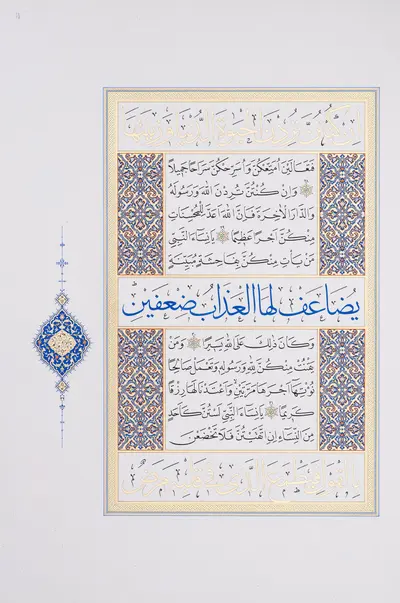 إِن كُنْتُنَّ تُرِدْنَ الْحَيٰوةَ الدُّنْيَا وَزِينَتَهَا
فَتَعَالَيْنَ أُمَتِّعْكُنَّ وَأُسَرِّحْكُنَّ سَرَاحًا جَمِيلًا
وَإِن كُنْتُنَّ تُرِدْنَ اللّٰهَ وَرَسُولَهُ
وَالدَّارَ الْاٰخِرَةَ فَإِنَّ اللّٰهَ أَعَدَّ لِلْمُحْسِنَاتِ
مِنْكُنَّ أَجْرًا عَظِيمًا يَا نِسَاءَ النَّبِيِّ
مَنْ يَأْتِ مِنْكُنَّ بِفَاحِشَةٍ مُبَيِّنَةٍ
يُضَاعَفْ لَهَا الْعَذَابُ ضِعْفَيْنِ
وَكَانَ ذٰلِكَ عَلَى اللّٰهِ يَسِيرًا وَمَنْ
يَقْنُتْ مِنْكُنَّ لِلّٰهِ وَرَسُولِهِ وَتَعْمَلْ صَالِحًا
نُؤْتِهَا أَجْرَهَا مَرَّتَيْنِ وَأَعْتَدْنَا لَهَا رِزْقًا
كَرِيمًا يَا نِسَاءَ النَّبِيِّ لَسْتُنَّ كَأَحَدٍ
مِنَ النِّسَاءِ إِنِ اتَّقَيْتُنَّ فَلَا تَخْضَعْنَ
بِالْقَوْلِ فَيَطْمَعَ الَّذِي فِي قَلْبِهِ مَرَضٌ